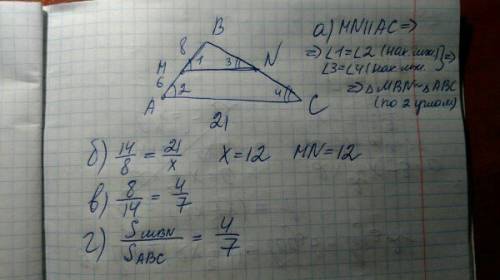 B
8
1
3
N
M
6
2
4
A
C
21
а) MN∥AC ⇒
⇒ ∠1=∠2 (нак. леж.) ] ⇒
∠3=∠4 (нак. леж.
⇒ △MBN~△ABC
(по 2 углам)
б) 14/8 = 21/x X=12 MN=12
в) 8/14 = 4/7
г) S MBN / S ABC = 4/7